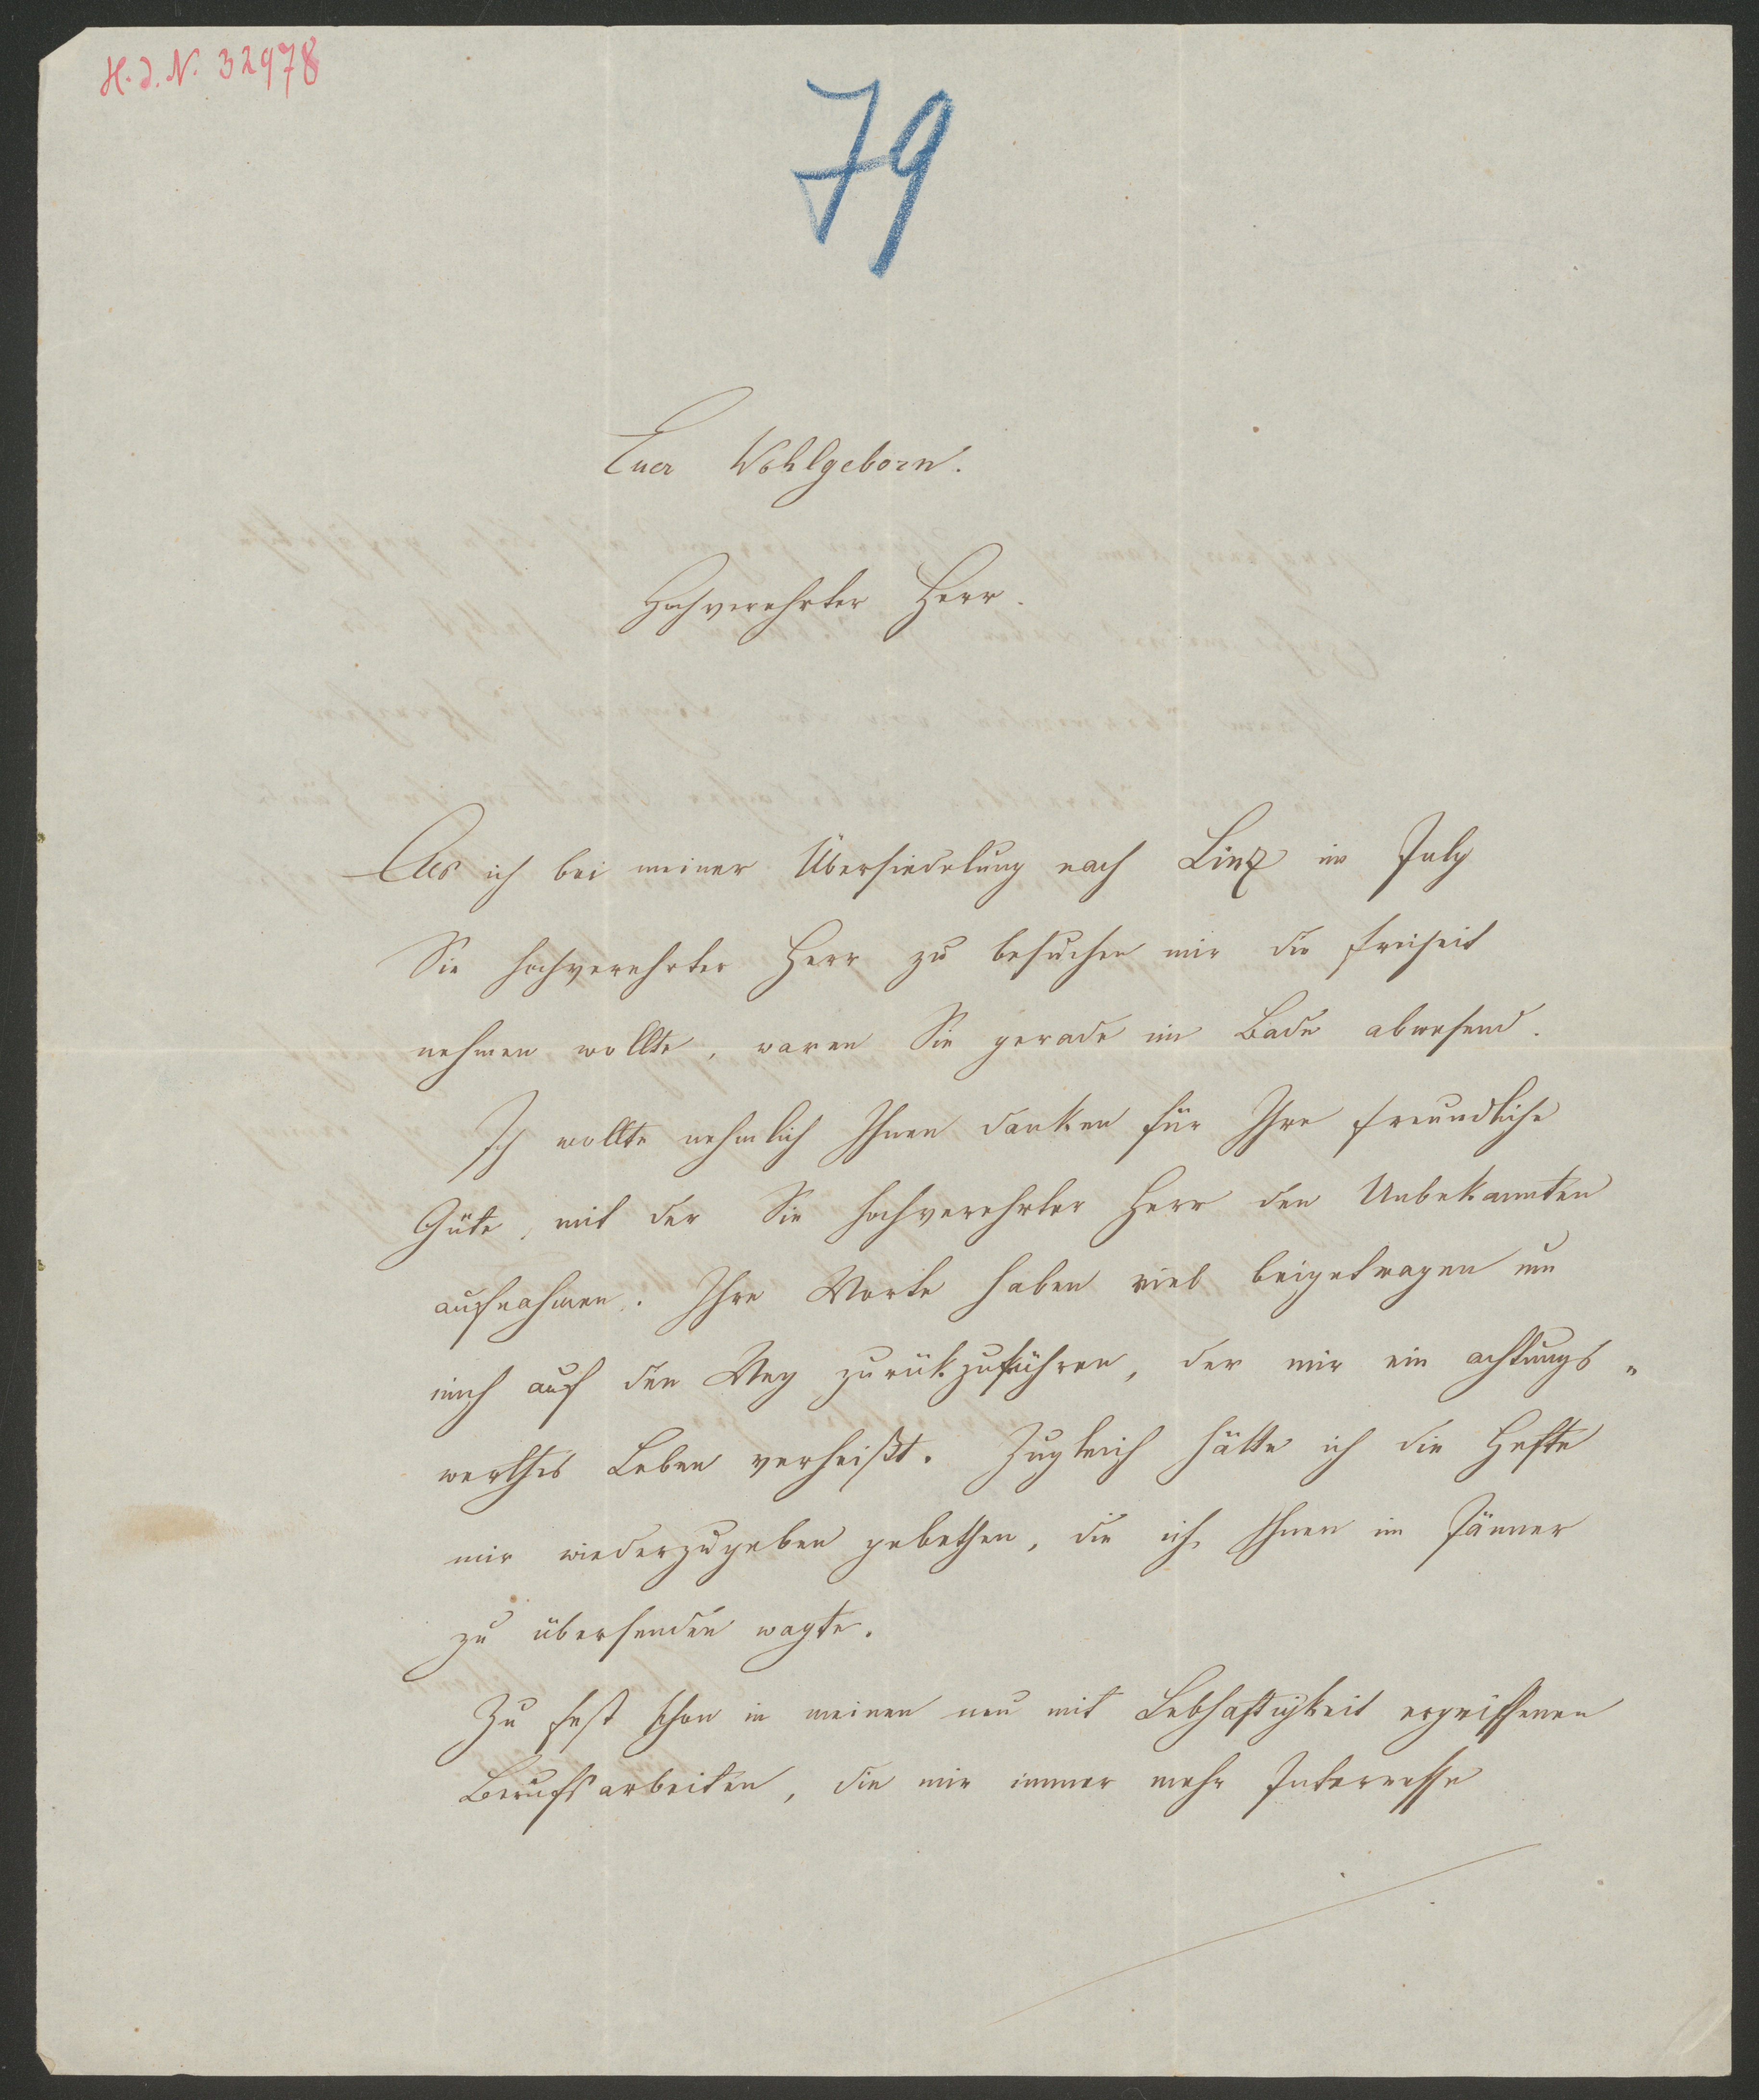 H. J. N. 32978
79
Euer Wohlgeborn.
Hochverehrter Herr.
Als ich bei meiner Übersiedelung nach Linz im July
Sie hochverehrter Herr zu besuchen mir die Freiheit
nehmen wollte, waren Sie gerade im Bade abwesend.
Ich wollte nehmlich Ihnen danken für Ihre freundliche
Güte, mit der Sie hochverehrter Herr den Unbekannten
aufnahmen. Ihre Worte haben viel beigetragen um
mich auf den Weg zurükzuführen, der mir ein achtungs„
werthes Leben verheißt. Zugleich hätte ich die Hefte
mir wiederzugeben gebethen, die ich Ihnen im Jänner
zu übersenden wagte.
Zu fest schon in meinen neu mit Lebhaftigkeit ergriffenen
Berufsarbeiten, die mir immer mehr Interesse